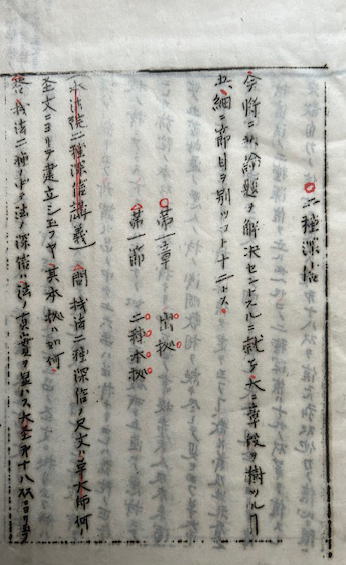 二種深信
今将ニ此論題ヲ解決セントスルニ就テ大ニ章段ヲ樹ツル
五、細ニ節目ヲ別ツコト十二トス
第一章 出拠
第一節 二種本拠
本法院二種深信講義 問 機法二種深信ノ尺文ハ草大師何ノ
聖文ニヨリテ建立シ玉フヤ其本拠ハ如何
答 機法二種ノ中ニ法ノ深信ハ法ノ真実ヲ显ハス大至オ十八